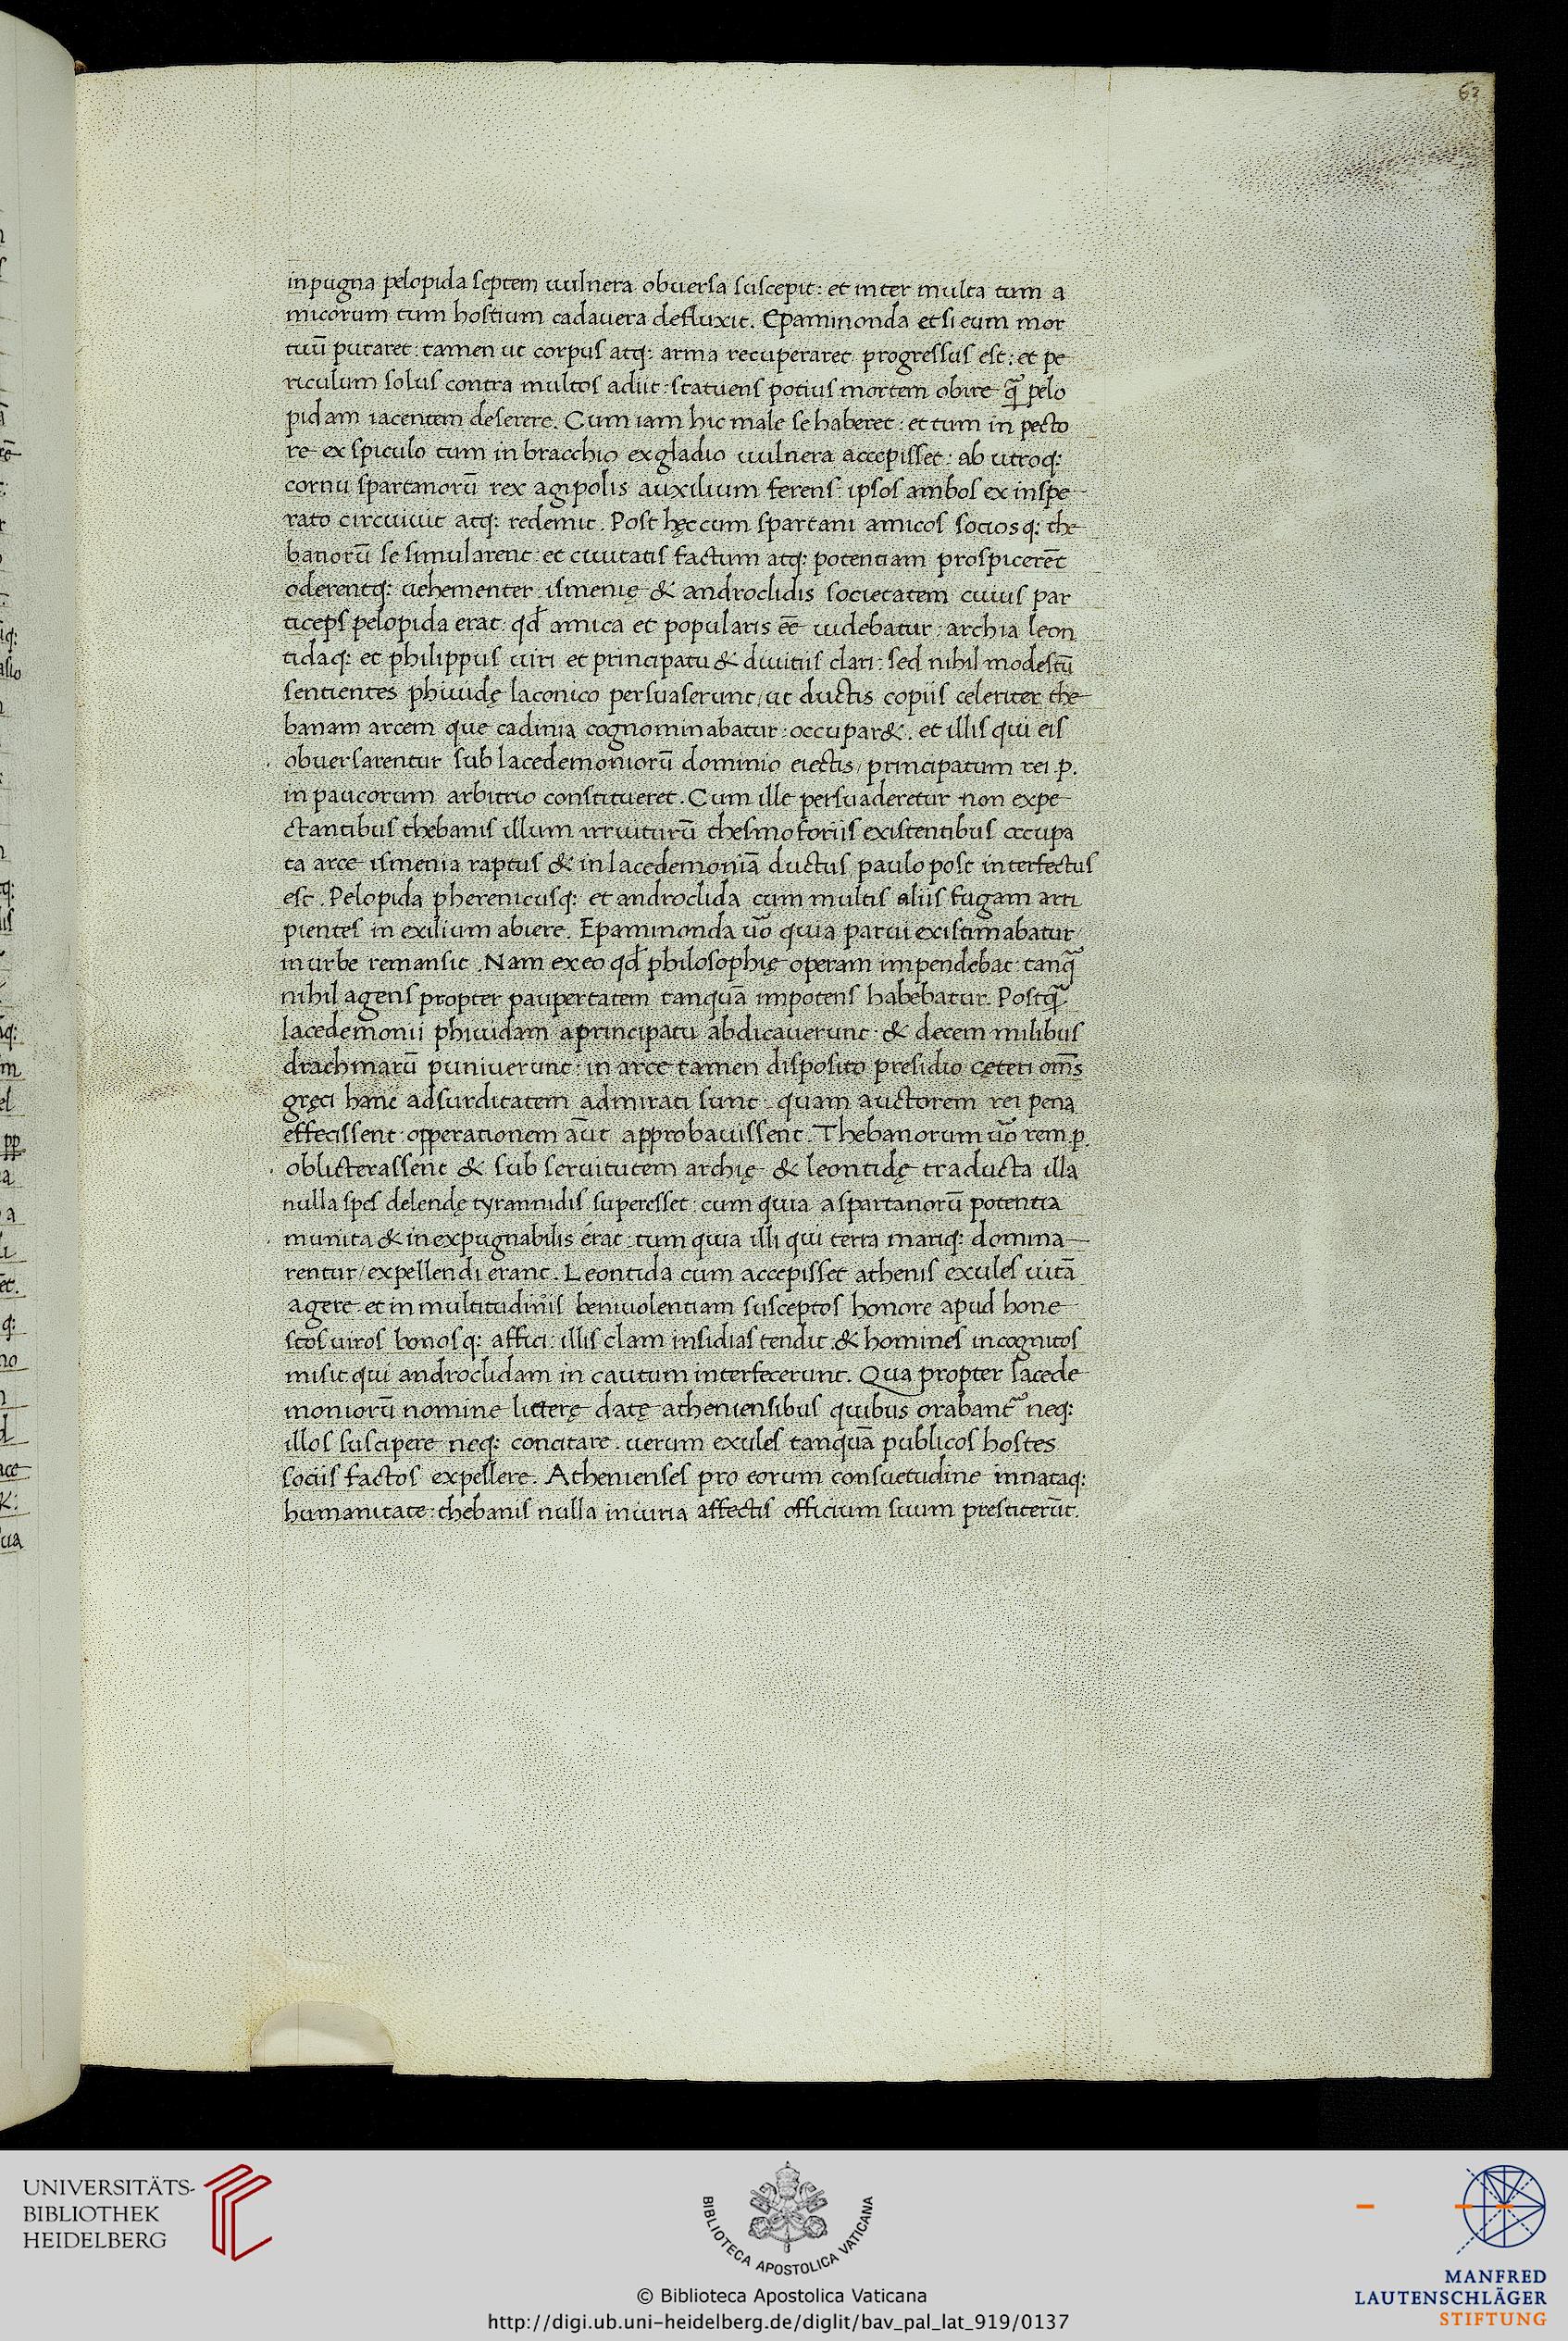 63
inpugna pelopida septem uulnera obuersa suscepit: et inter multa tum a
micorum tum hostium cadauera defluxit. Epaminonda etsi eum mor
tuū putaret: tamen ut corpus atq: arma recuperaret progressus est: et pe
riculum solus contra multos adiit: statuens potius mortem obire q̄ pelo
pidam iacentem deserere. Cum iam hic male se haberet: et tum in pecto
re ex spiculo tum in bracchio ex gladio uulnera accepisset: ab utroq:
cornu spartanorū rex agipolis auxilium ferens: ipsos ambos ex inspe
rato circuiuit atq: redemit. Post hęc cum spartani amicos sociosq: the
banorū se simularent: et ciuitatis factum atq: potentiam prospicerēt
oderentq: uehementer ismenię & androclidis societatem cuius par
ticeps pelopida erat: qd̄ amica et popularis eē uidebatur: archia leon
tidaq: et philippus uiri et principatu & diuitiis clari: sed nihil modestū
sentientes phiuidę laconico persuaserunt, ut ductis copiis celeriter the
banam arcem que cadinia cognominabatur: occupar&. et illis qui eis
obuersarentur sub lacedemoniorū dominio eiectis, principatum rei p.
in paucorum arbitrio constitueret. Cum ille persuaderetur non expe
ctantibus thebanis illum irruiturū thesmoforiis existentibus occupa
ta arce ismenia raptus & in lacedemoniā ductus, paulo post interfectus
est. Pelopida pherenicusq: et androclida cum multis aliis fugam arri
pientes in exilium abiere. Epaminonda ūo quia parui existimabatur
in urbe remansit. Nam ex eo qd̄ philosophię operam impendebat: tanq̄
nihil agens propter paupertatem tanquā impotens habebatur. Postq̄
lacedemonii phiuidam a principatu abdicauerunt: & decem milibus
drachmarū puniuerunt: in arce tamen disposito presidio cęteri om̄s
gręci hanc adsurditatem admirati sunt: quam auctorem rei pena
effecissent: opperationem aūt approbauissent. Thebanorum ūo rem p.
oblicterassent & sub seruitutem archię & leontidę traducta illa
nulla spes delendę tyrannidis superesset: cum quia a spartanorū potentia
munita & inexpugnabilis erat: tum quia illi qui terra mariq: domina
rentur, expellendi erant. Leontida cum accepisset athenis exules uitā
agere: et in multitudinis beniuolentiam susceptos honore apud hone
stos uiros bonosq: affici: illis clam insidias tendit & homines incognitos
misit qui androclidam in cautum interfecerunt. Qua propter lacede
moniorū nomine litterę datę atheniensibus quibus orabant̄ neq:
illos suscipere neq: concitare. uerum exules tanquā publicos hostes
sociis factos expellere. Athenienses pro eorum consuetudine innataq:
humanitate: thebanis nulla iniuria affectis officium suum prestiterūt.
UNIVERSITÄTS-
BIBLIOTHEK
HEIDELBERG
BIBLIOTECA APOSTOLICA VATICANA
© Biblioteca Apostolica Vaticana
http://digi.ub.uni-heidelberg.de/diglit/bav_pal_lat_919/0137
MANFRED
LAUTENSCHLÄGER
STIFTUNG